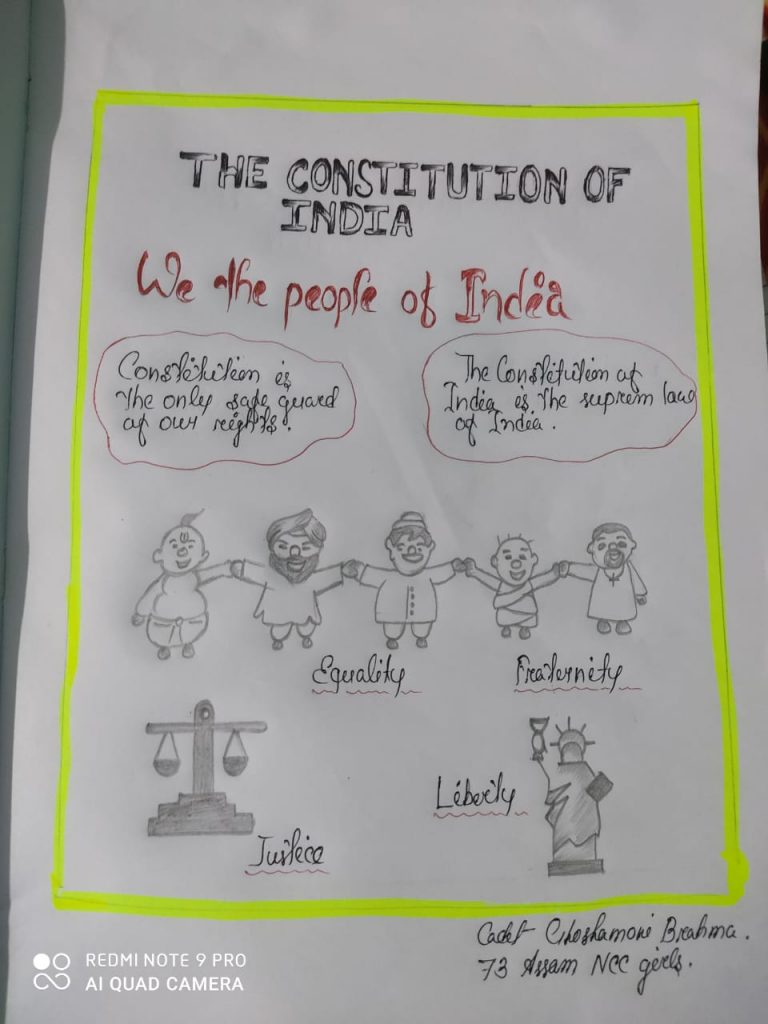 THE CONSTITUTION OF
INDIA
We the people of India
Constitution is
the only safe guard
of our rights.
The Constitution of
India is the suprem law
of India.
Equality
Fraternity
Liberty
Justice
Cadet Ghoshamoni Brahma.
73 Assam NCC girls.
REDMI NOTE 9 PRO
AI QUAD CAMERA